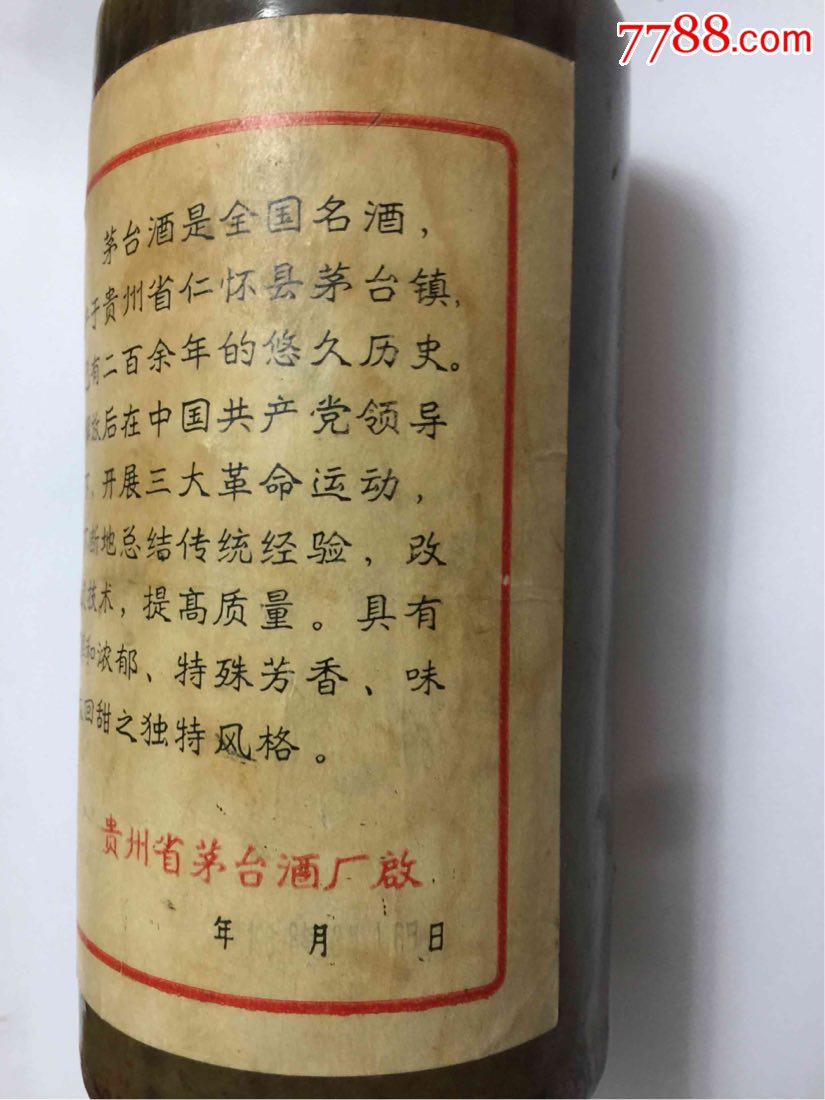 7788.com
茅台酒是全国名酒，
于贵州省仁怀县茅台镇，
已有二百余年的悠久历史。
放后在中国共产党领导
下，开展三大革命运动，
不断地总结传统经验，改
技术，提高质量。具有
和浓郁、特殊芳香、味
回甜之独特风格。
贵州省茅台酒厂啟
年 月 日